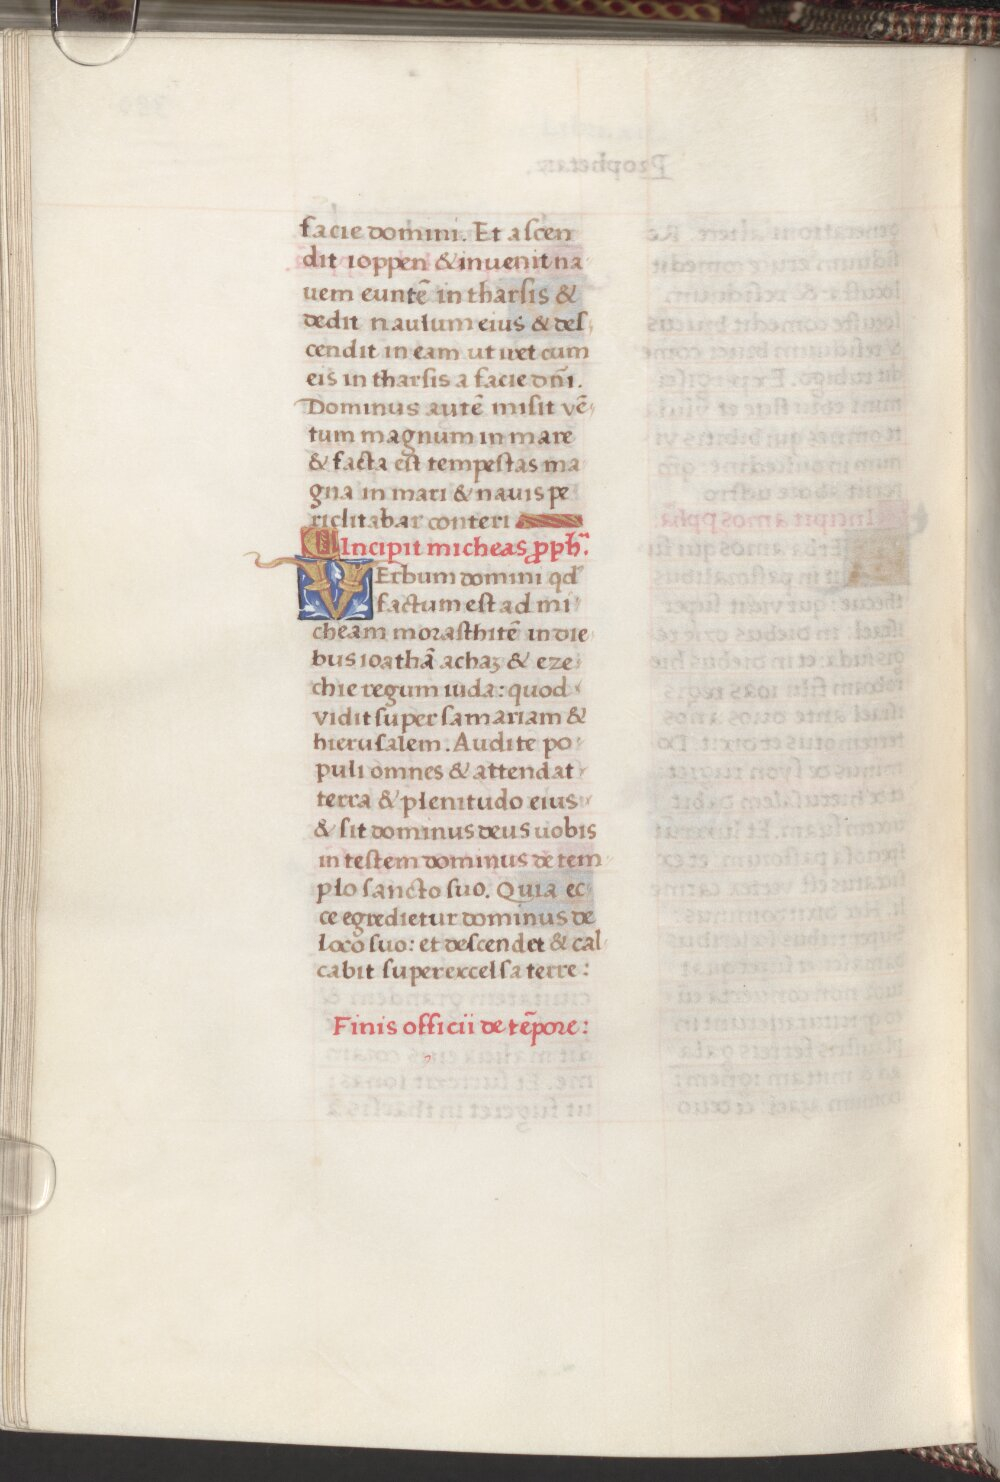 facie domini. Et ascen
dit ioppen & inuenit na
uem euntē in tharsis &
dedit naulum eius & des
cendit in eam ut iret cum
eis in tharsis a facie dn̄i.
Dominus autē misit vē
tum magnum in mare
& facta est tempestas ma
gna in mari & nauis pe
riclitabar conteri
Incipit micheas ꝓph̄.
VErbum domini qd̄
factum est ad mi
cheam morasthitē in die
bus ioathā achaz & eze
chie regum iuda: quod
vidit super samariam &
hierusalem. Audite po
puli omnes & attendat
terra & plenitudo eius
& sit dominus deus uobis
in testem dominus de tem
plo sancto suo. Quia ec
ce egredietur dominus de
loco suo: et descendet & cal
cabit super excelsa terre:
Finis officii de tēpore: